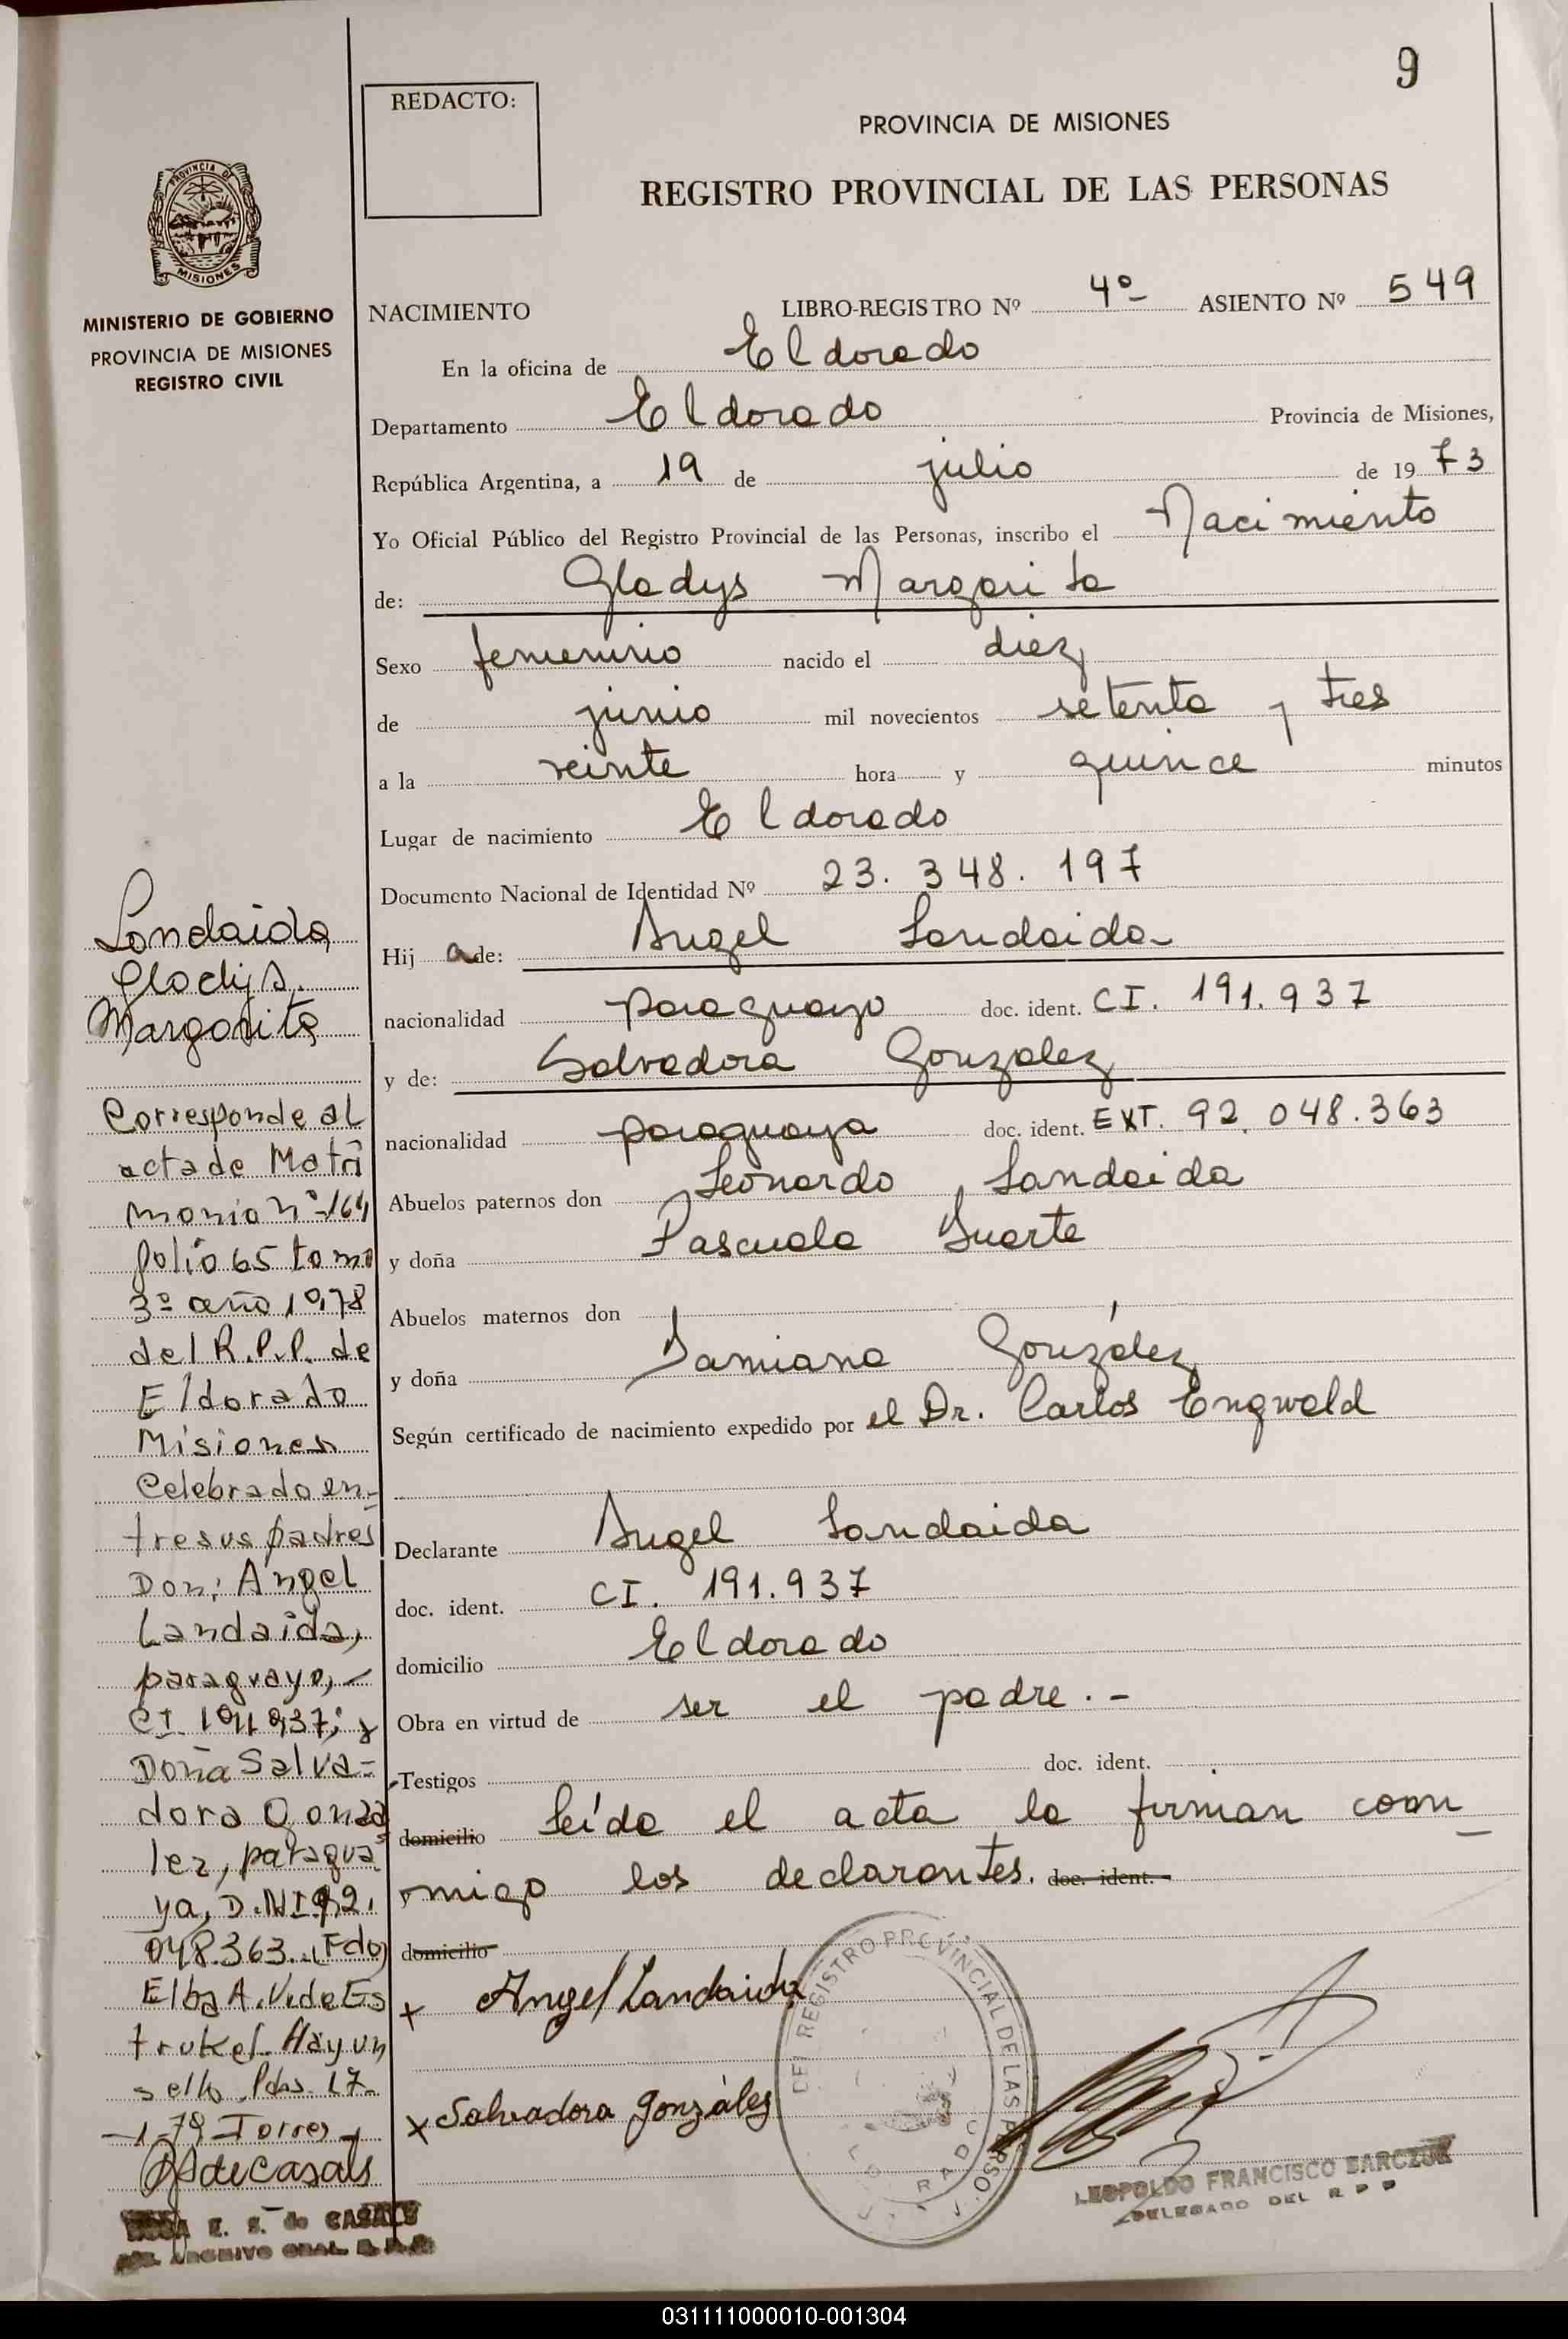 9
REDACTO:
PROVINCIA DE MISIONES
REGISTRO PROVINCIAL DE LAS PERSONAS
PROVINCIA DE
MISIONES
MINISTERIO DE GOBIERNO
PROVINCIA DE MISIONES
REGISTRO CIVIL
NACIMIENTO LIBRO-REGISTRO Nº 4º ASIENTO Nº 549
En la oficina de Eldorado
Departamento Eldorado Provincia de Misiones,
República Argentina, a 19 de julio de 1973
Yo Oficial Público del Registro Provincial de las Personas, inscribo el Nacimiento
de: Gladys Margarita
Sexo femenino nacido el diez
de junio mil novecientos setenta y tres
a la veinte hora y quince minutos
Lugar de nacimiento Eldorado
Documento Nacional de Identidad Nº 23.348.197
Hij a de: Angel Landaida
nacionalidad paraguayo doc. ident. CI. 191.937
y de: Salvadora Gonzalez
nacionalidad paraguaya doc. ident. EXT. 92.048.363
Abuelos paternos don Leonardo Landaida
y doña Pascuala Duarte
Abuelos maternos don
y doña Damiana González
Según certificado de nacimiento expedido por el Dr. Carlos Engwald
Declarante Angel Landaida
doc. ident. CI. 191.937
domicilio Eldorado
Obra en virtud de ser el padre.-
Testigos doc. ident.
domicilio Leída el acta la firman con
migo los declarantes. doc. ident.
domicilio
x Angel Landaida
x Salvadora González
DEL REGISTRO PROVINCIAL DE LAS PERSO
LEOPOLDO FRANCISCO BARCZUK
DELEGADO DEL R P P
Landaida
Gladys
Margarita
Corresponde al
acta de Matri
monio nº 164
folio 65 tomo
3º año 1978
del R.P.P. de
Eldorado
Misiones
Celebrado en-
tre sus padres
Don: Angel
Landaida,
paraguayo,-
CI 191937; y
Doña Salva=
dora Gonza
lez, paragua
ya, D.NI 92.
048.363. Fdo
Elba A. V. de Es
trukel. Hay un
sello. Pdas. 17
-1-79 Torres
de Casals
E. S. de CASALS
ARCHIVO GRAL. R.P.P.
031111000010-001304